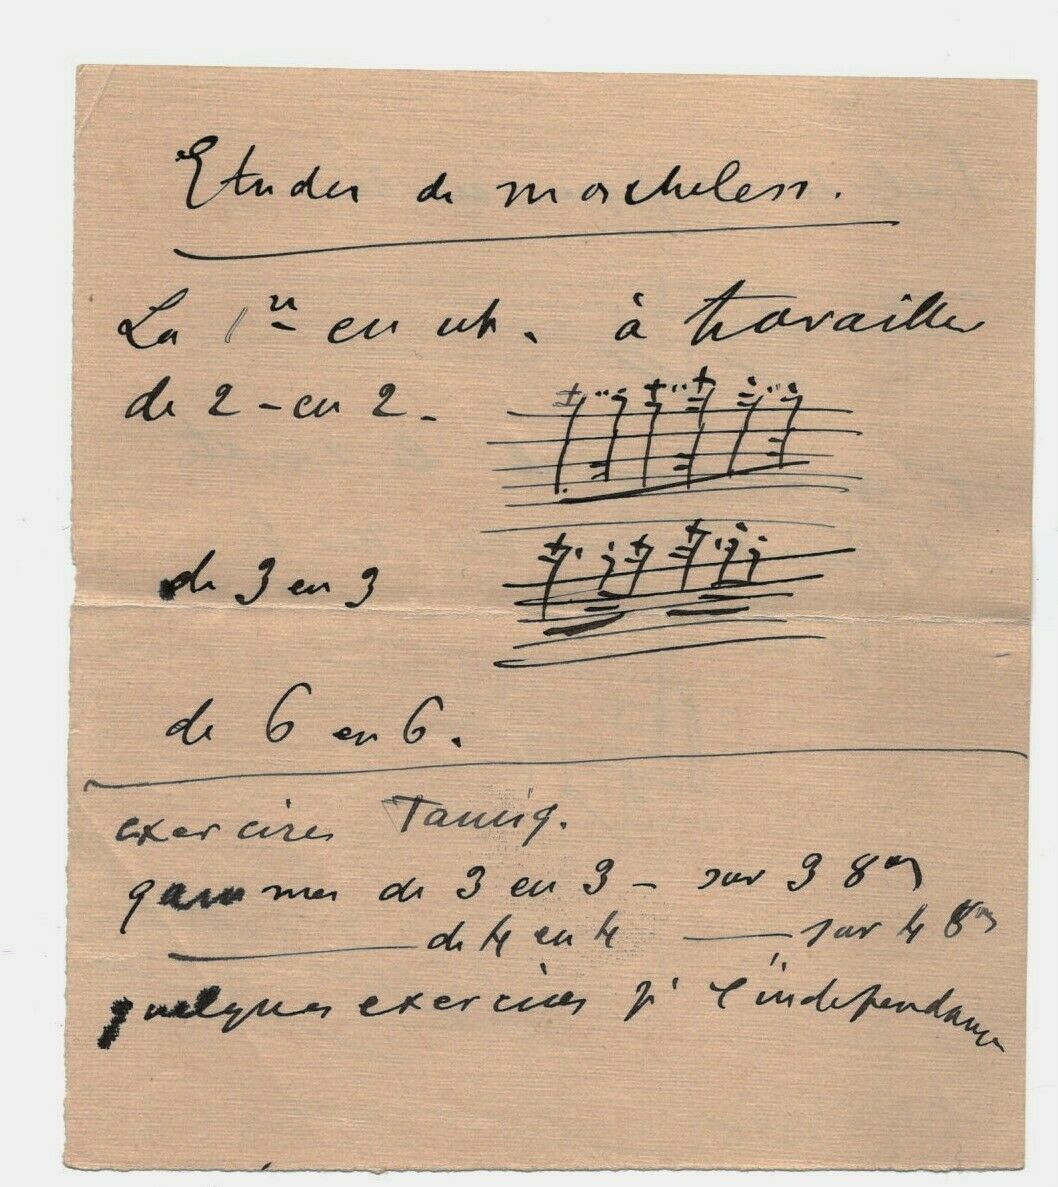 Etudes de moscheless.
La 1re en ut. à travailler
de 2 - en 2 -
de 3 en 3
de 6 en 6.
exercices Tausig.
gammes de 3 en 3 - sur 3 8ves
de 4 en 4 sur 4 8ves
quelques exercices pr l'indépendance